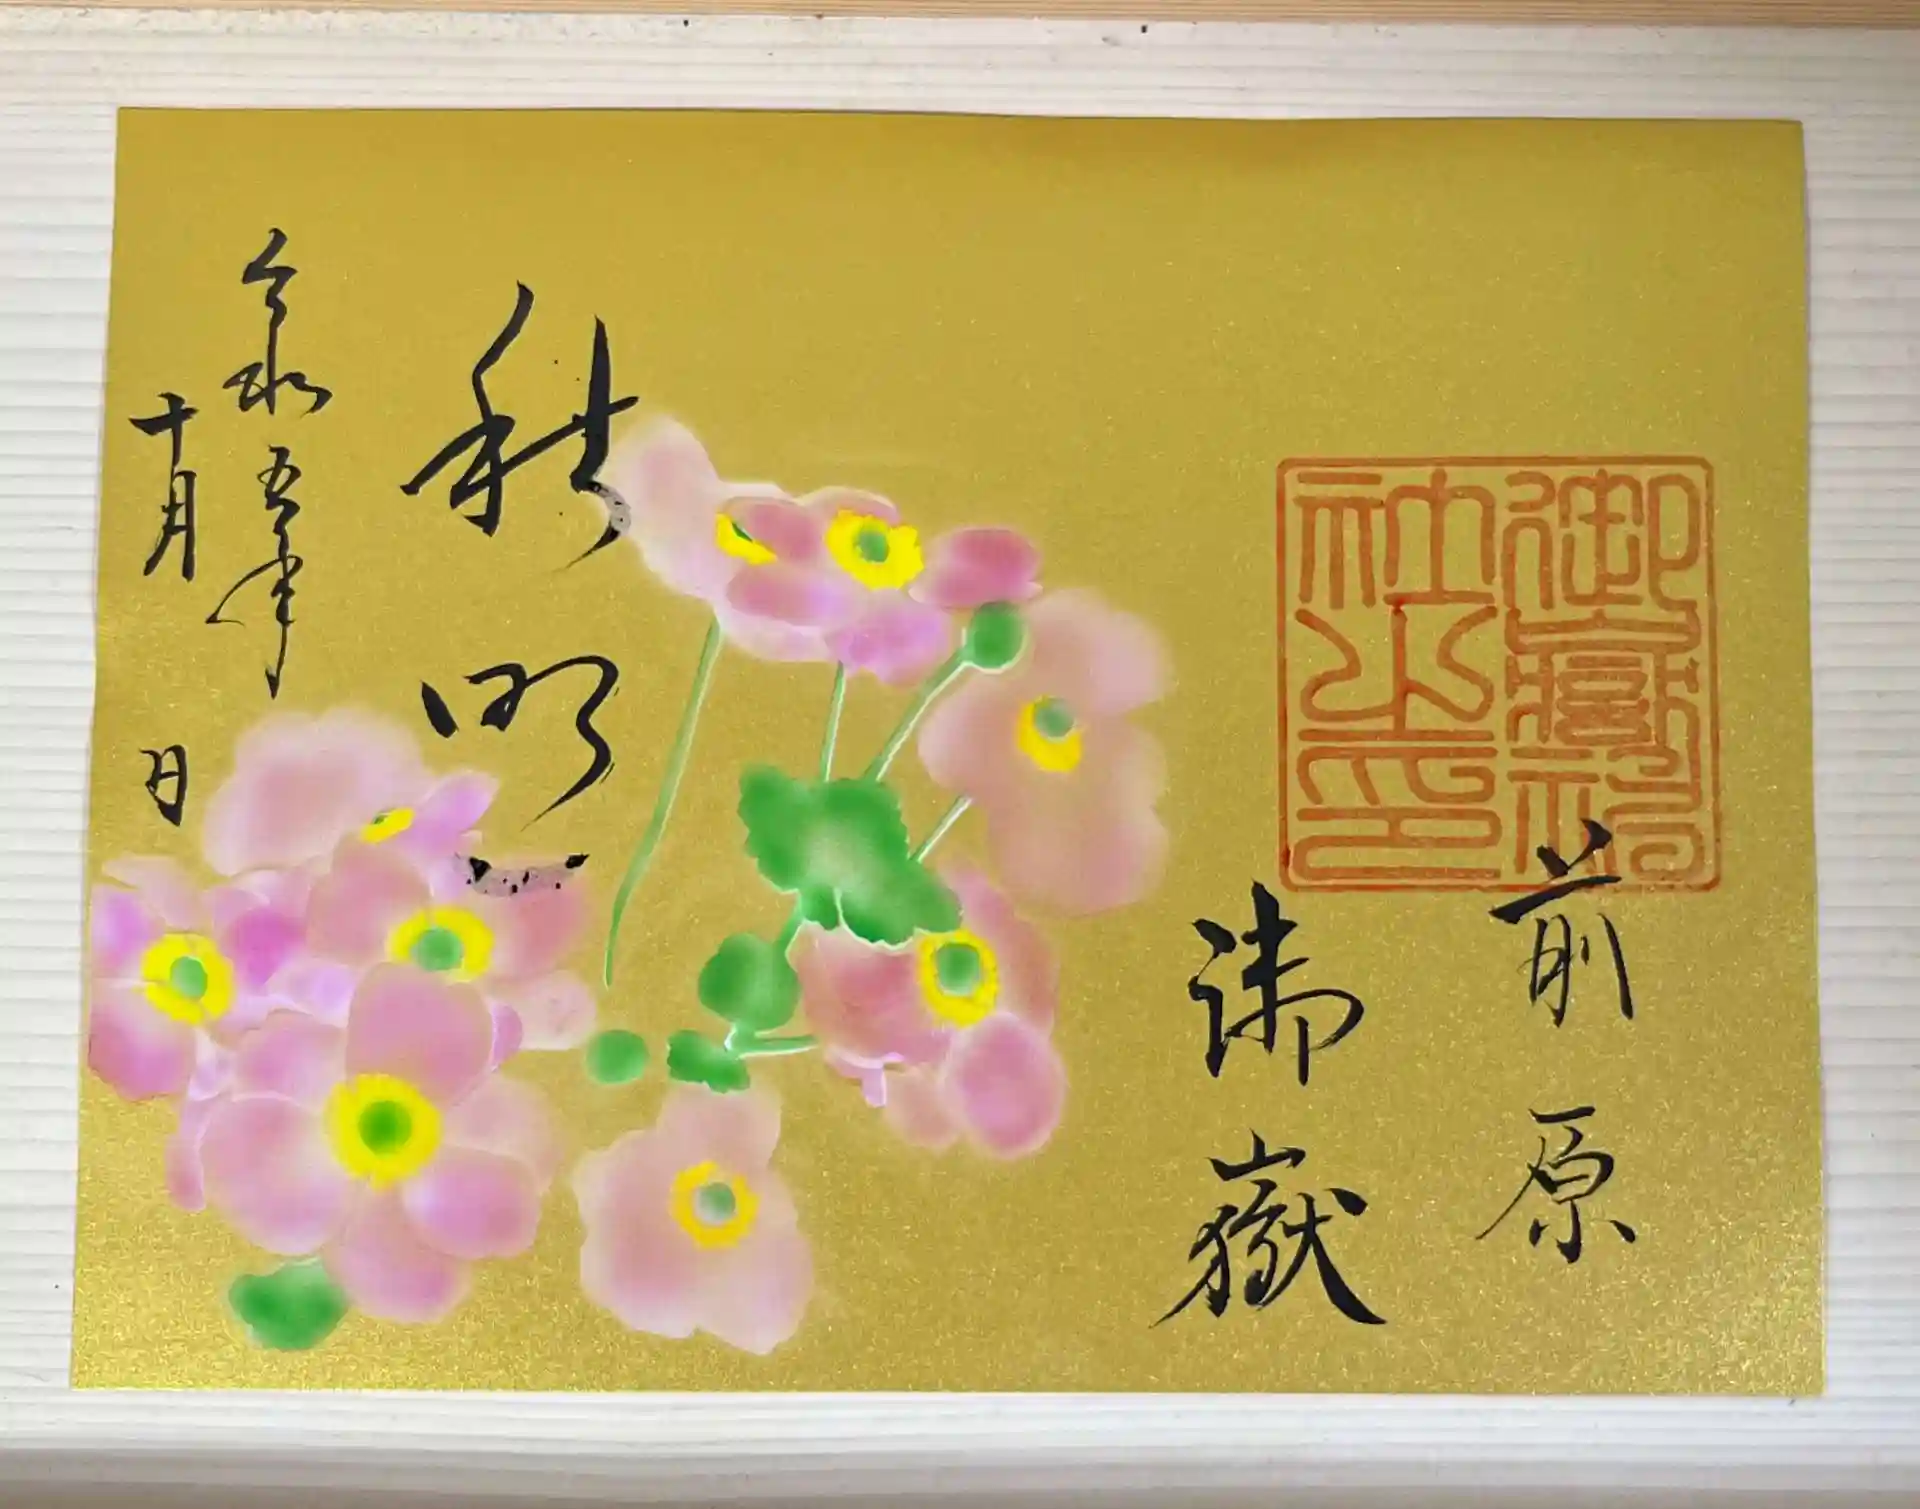 前原
御嶽
御嶽神
社之印
秋明
令和五年
十月
日